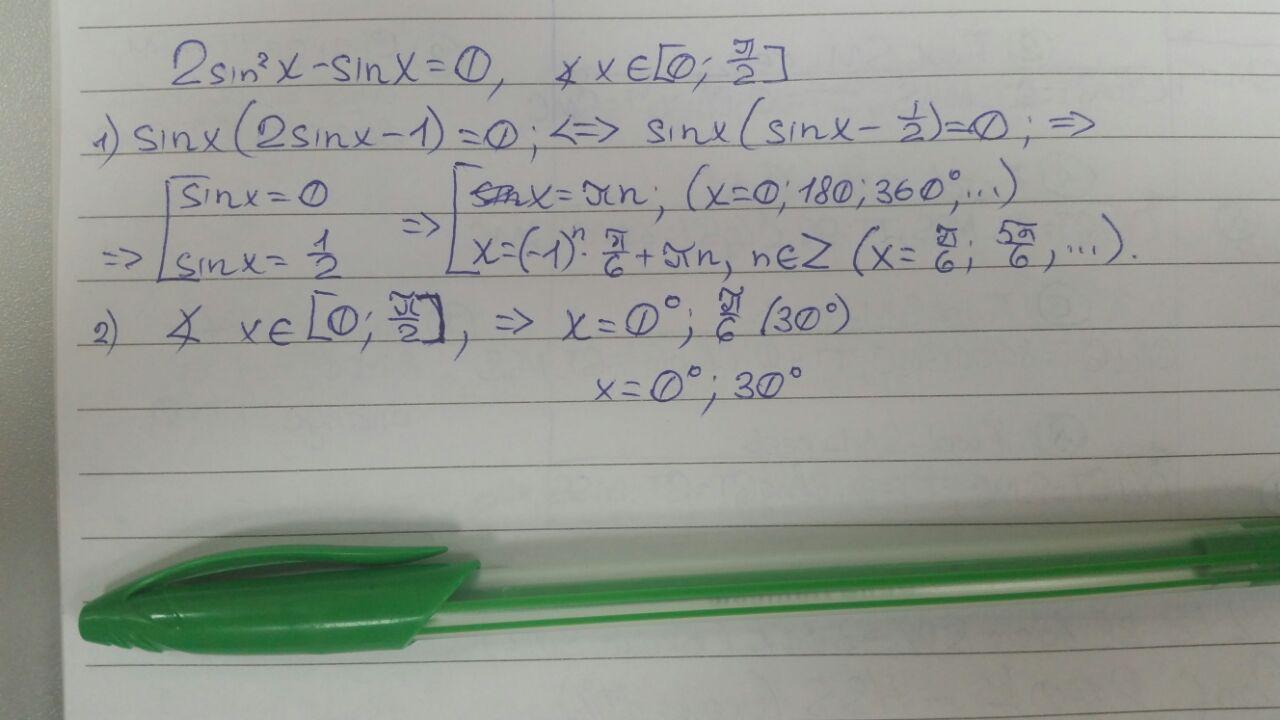 2sin²x-sinx=0, ∡ x∈[0; π/2]
1) sinx(2sinx-1)=0; <=> sinx(sinx-1/2)=0; =>
=> [sinx=0 => [x=πn; (x=0; 180; 360°,...)
sinx=1/2 x=(-1)ⁿ·π/6+πn, n∈Z (x=π/6; 5π/6,...).
2) ∡ x∈[0; π/2], => x=0°; π/6 (30°)
x=0°; 30°